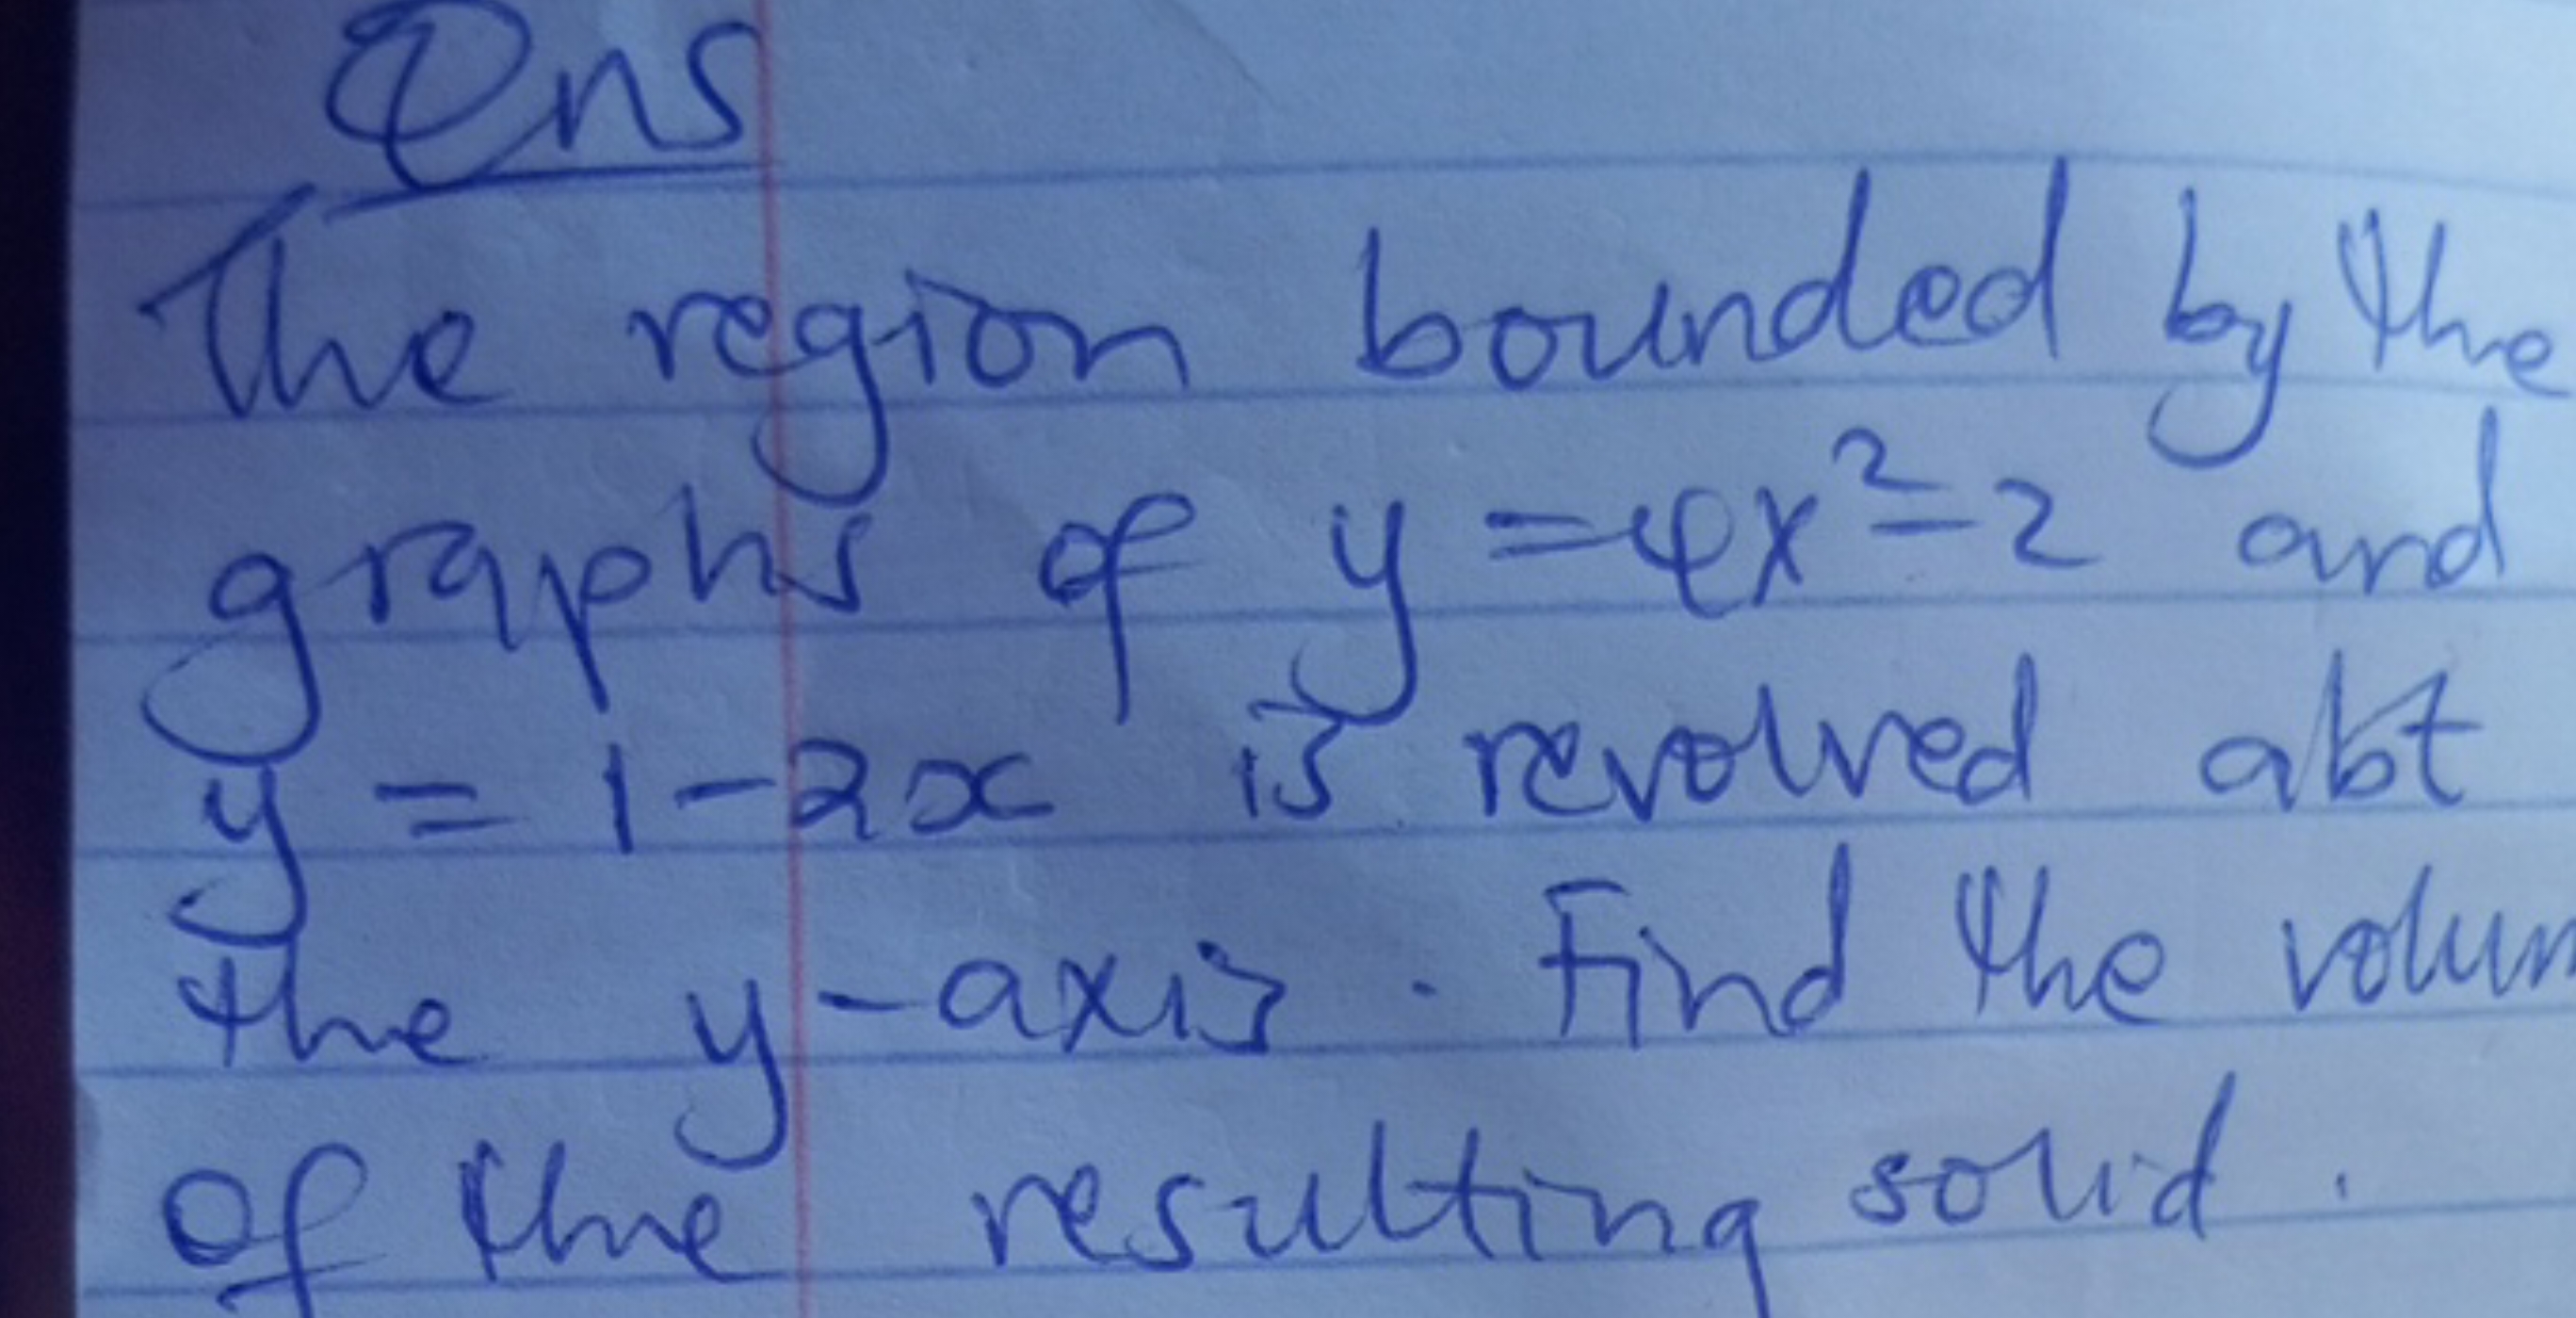 Qns
The region bounded by the
graphs of y = 4x² - 2 and
y = 1 - 2x is revolved abt
the y-axis. Find the volum
of the resulting solid.